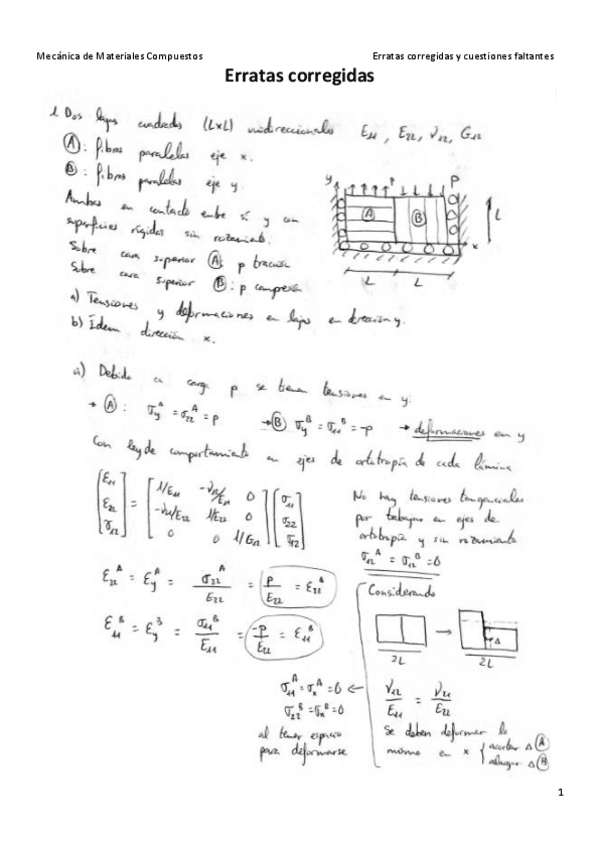 Mecánica de Materiales Compuestos Erratas corregidas y cuestiones faltantes
Erratas corregidas
1. Dos lajas cuadradas (LxL) unidireccionales E₁₁, E₂₂, ν₁₂, G₁₂
Ⓐ: fibras paralelas eje x.
Ⓑ: fibras paralelas eje y.
Ambas en contacto entre sí y con
superficies rígidas sin rozamiento.
Sobre cara superior Ⓐ: p tracción
Sobre cara superior Ⓑ: p compresión
y P P
A B
L
x
L L
a) Tensiones y deformaciones en lajas en dirección y.
b) Ídem dirección x.
a) Debido a carga p se tienen tensiones en y:
→ Ⓐ: σyᴬ = σ₂₂ᴬ = p → Ⓑ σyᴮ = σ₁₁ᴮ = -p → deformaciones en y
Con ley de comportamiento en ejes de ortotropía de cada lámina
[ε₁₁ ε₂₂ γ₁₂] = [1/E₁₁ -ν₁₂/E₁₁ 0; -ν₂₁/E₂₂ 1/E₂₂ 0; 0 0 1/G₁₂] [σ₁₁ σ₂₂ σ₁₂]
No hay tensiones tangenciales
por trabajar en ejes de
ortotropía y sin rozamiento
σ₁₂ᴬ = σ₁₂ᴮ = 0
ε₂₂ᴬ = εyᴬ = σ₂₂ᴬ/E₂₂ = p/E₂₂
ε₁₁ᴮ = εyᴮ = σ₁₁ᴮ/E₁₁ = -p/E₁₁ = ε₁₁ᴮ
Considerando
2L → 2L Δ
σ₁₁ᴬ = σxᴬ = 0 ←
σ₂₂ᴮ = σxᴮ = 0
al tener espacio
para deformarse
ν₁₂/E₁₁ = ν₂₁/E₂₂
Se deben deformar lo
mismo en x { acortar Δ Ⓐ
alargar Δ Ⓑ
1